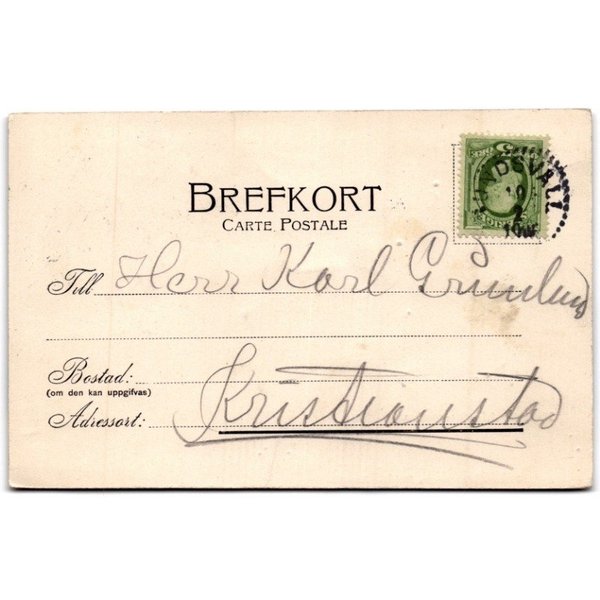 BREFKORT
CARTE POSTALE
Till Herr Karl Grunlund
Bostad:
(om den kan uppgifvas)
Adressort: Kristianstad